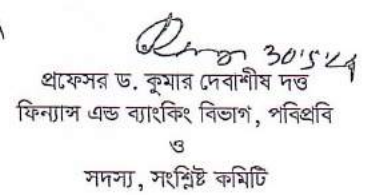 30.5.24
প্রফেসর ড. কুমার দেবাশীষ দত্ত
ফিন্যান্স এন্ড ব্যাংকিং বিভাগ, পবিপ্রবি
ও
সদস্য, সংশ্লিষ্ট কমিটি